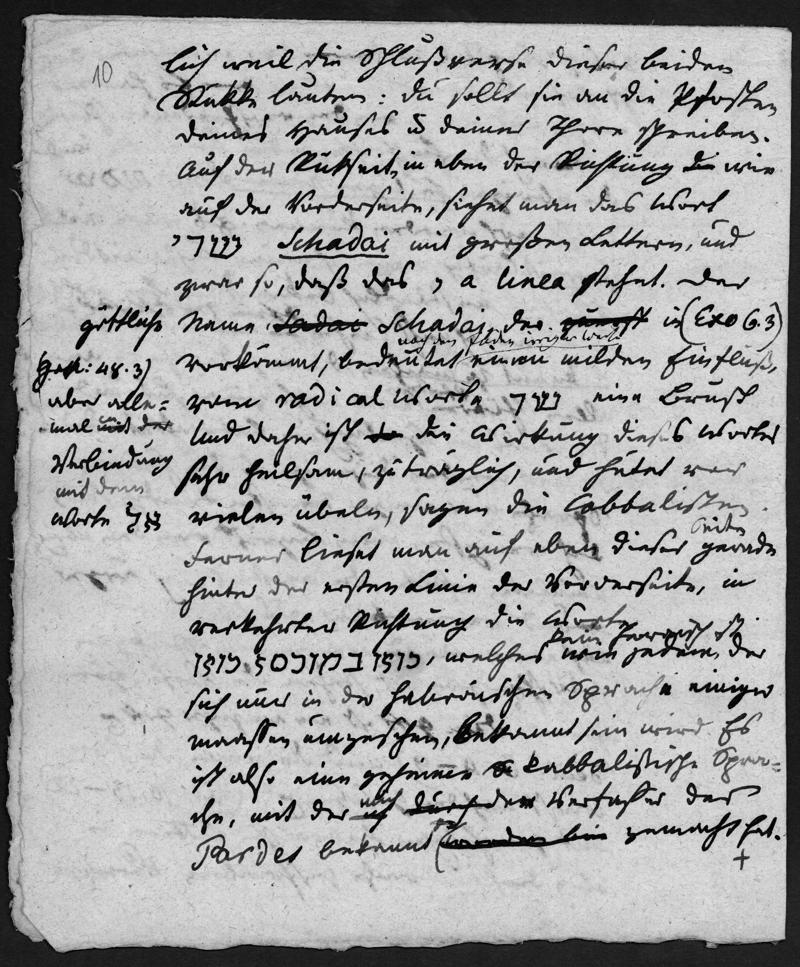 10
lich weil die Schlußverse dieser beiden
Stükke lauten: du sollst sie an die Pfosten
deines Hauses u deiner Thore schreiben.
Auf der Rükseite, in eben der Richtung die wie
auf der Vorderseite, siehet man das Wort
שדי Schadai mit großen Lettern, und
zwar so, daß das י a linea stehet. Der
göttliche Name Sadai Schadai, der zuerst in (Exo 6. 3)
nach den
vorkömmt, bedeutet einen milden Einfluß,
vom radical Worte שד eine Brust
Und daher ist die Wirkung dieses Wortes
sehr heilsam, zuträglich, und hütet vor
vielen übeln, sagen die Cabbalisten.
(Gen: 48. 3)
aber alle=
mal mit der
Verbindung
mit dem
Worte
Ferner lieset man auf eben dieser Seite gerade
hinter der ersten Linie der Vorderseite, in
verkehrter Richtung die Worte
כוזו במוכסז כוזו, welches kein Hebräisch ist
wie jedem, der
sich nur in der hebräischen Sprache einiger
maassen umgesehen, bekannt sein wird. Es
ist also eine geheime Kabbalistische Spra=
che, mit der mich der Verfasser des
Pardes bekannt gemacht hat.
+